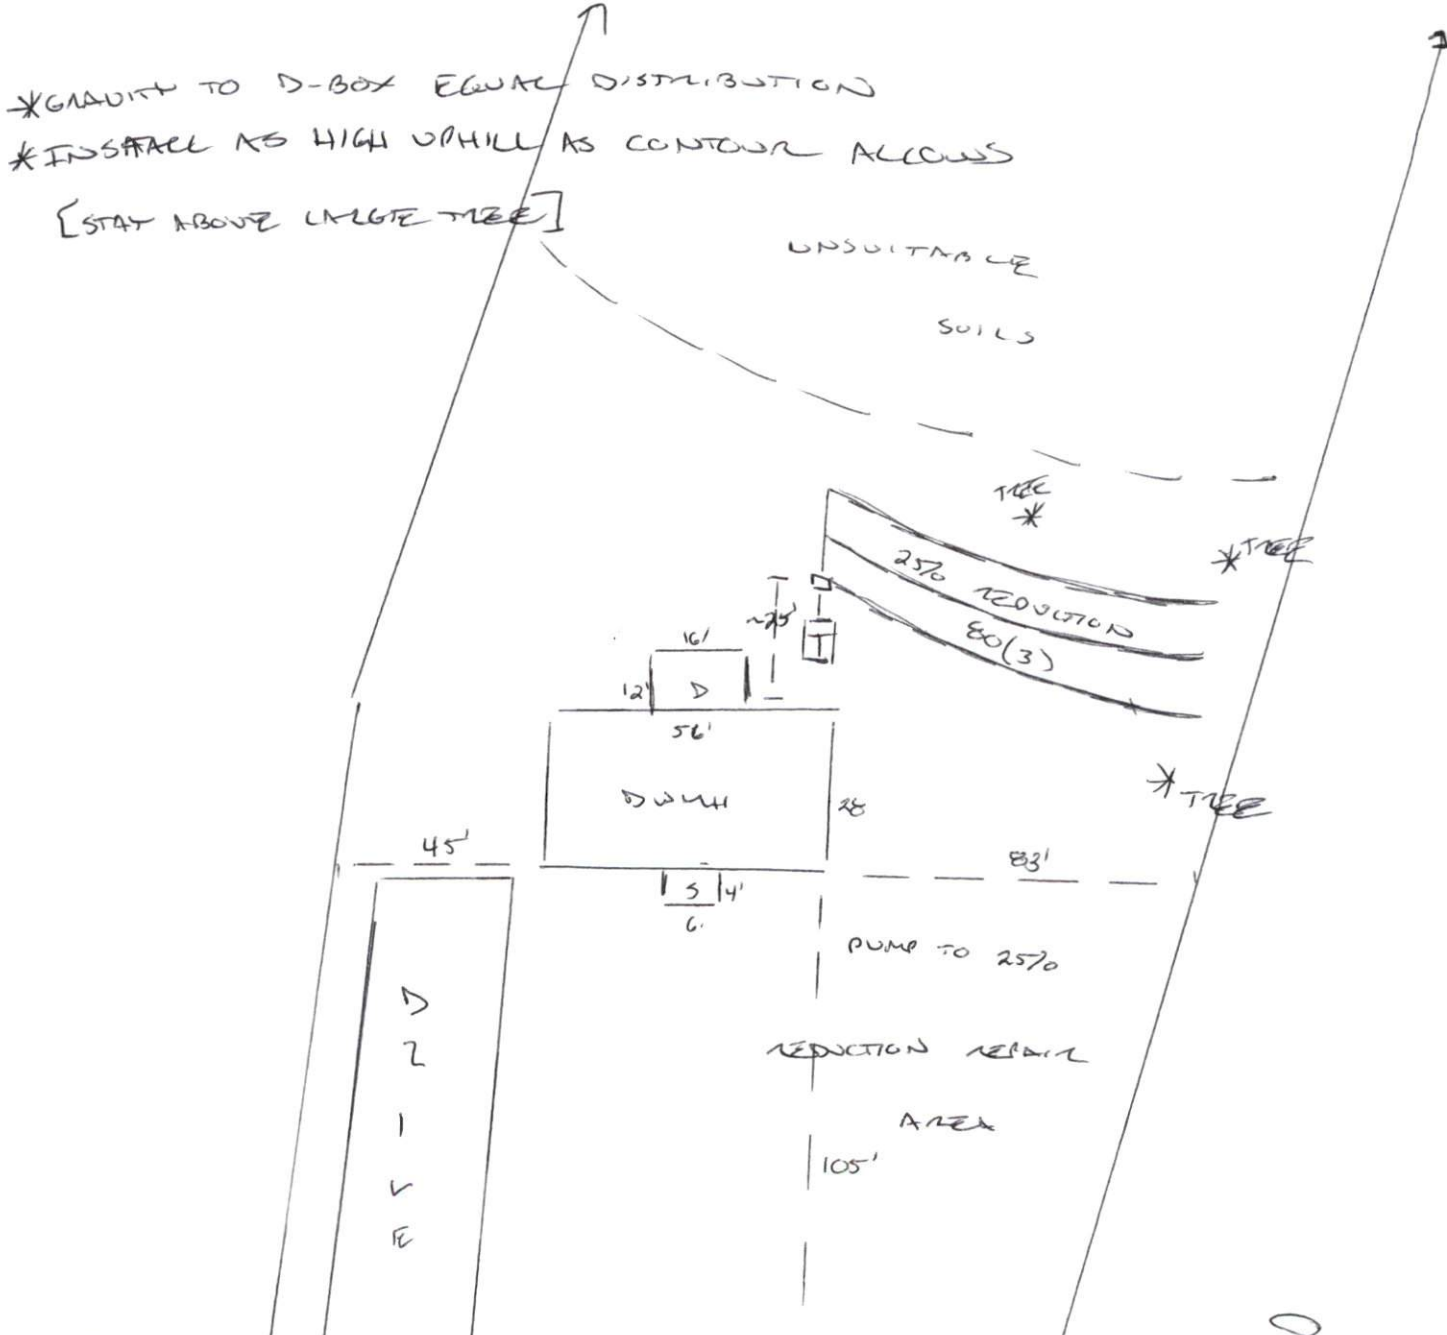 *GRAVITY TO D-BOX EQUAL DISTRIBUTION
*INSTALL AS HIGH UPHILL AS CONTOUR ALLOWS
[STAY ABOVE LARGE TREE]
UNSUITABLE
SOILS
TREE
*
*TREE
25% REDUCTION
80(3)
~25'
T
16'
12'
D
56'
DWMH
28
*TREE
45'
83'
S
4'
6'
PUMP TO 25%
REDUCTION REPAIR
AREA
105'
DRIVE